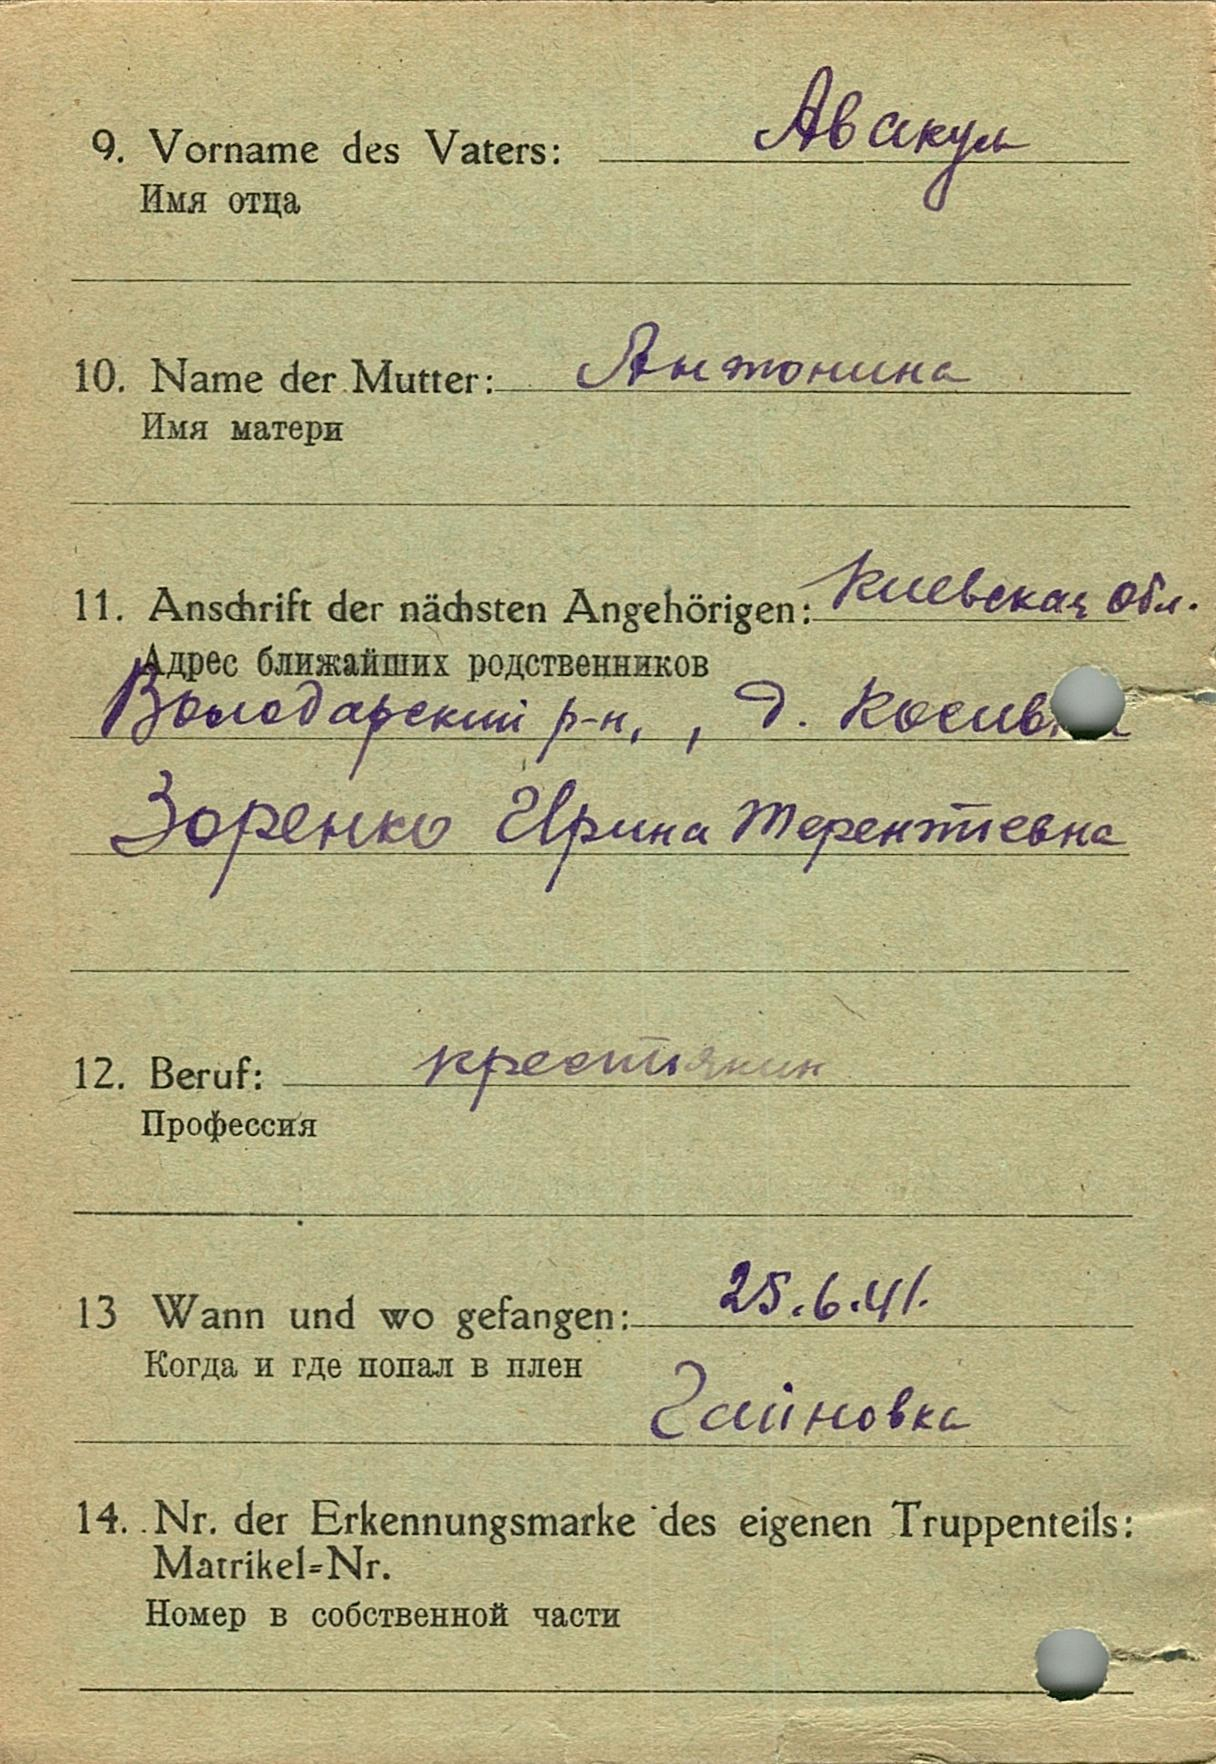 9. Vorname des Vaters: Авакум
Имя отца
10. Name der Mutter: Антонина
Имя матери
11. Anschrift der nächsten Angehörigen: Киевская обл.
Адрес ближайших родственников
Володарский р-н., д.
Зоренко Ирина Терентievна
12. Beruf: крестьянин
Профессия
13 Wann und wo gefangen: 25.6.41.
Когда и где попал в плен
Гайновка
14. Nr. der Erkennungsmarke des eigenen Truppenteils:
Matrikel=Nr.
Номер в собственной части